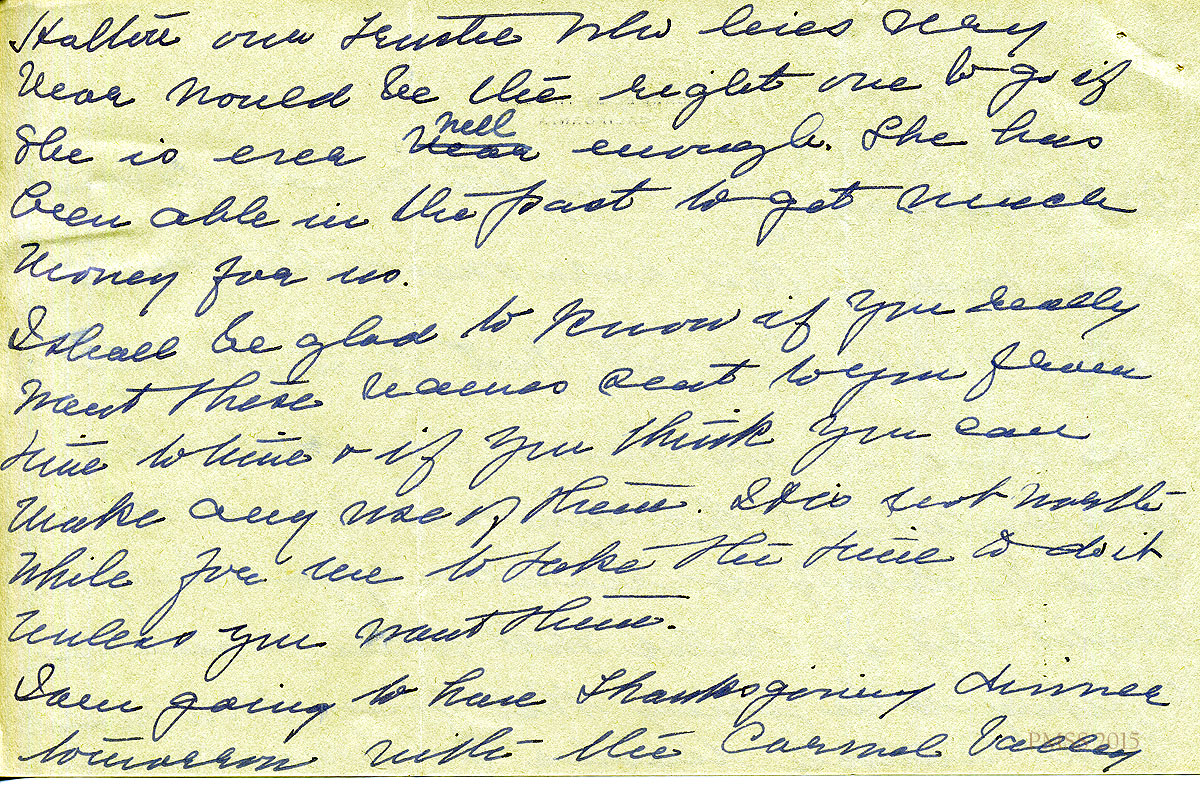 Halton our Trustee who lives very
near would be the right one to go if
she is ever ~~near~~ well enough. She has
been able in the past to get much
money for us.
I shall be glad to know if you really
want these names sent to you from
time to time & if you think you can
make any use of them. It is not worth
while for me to take the time to do it
unless you want them.
I am going to have Thanksgiving dinner
tomorrow with the Carmel Valley
PMSS 2015